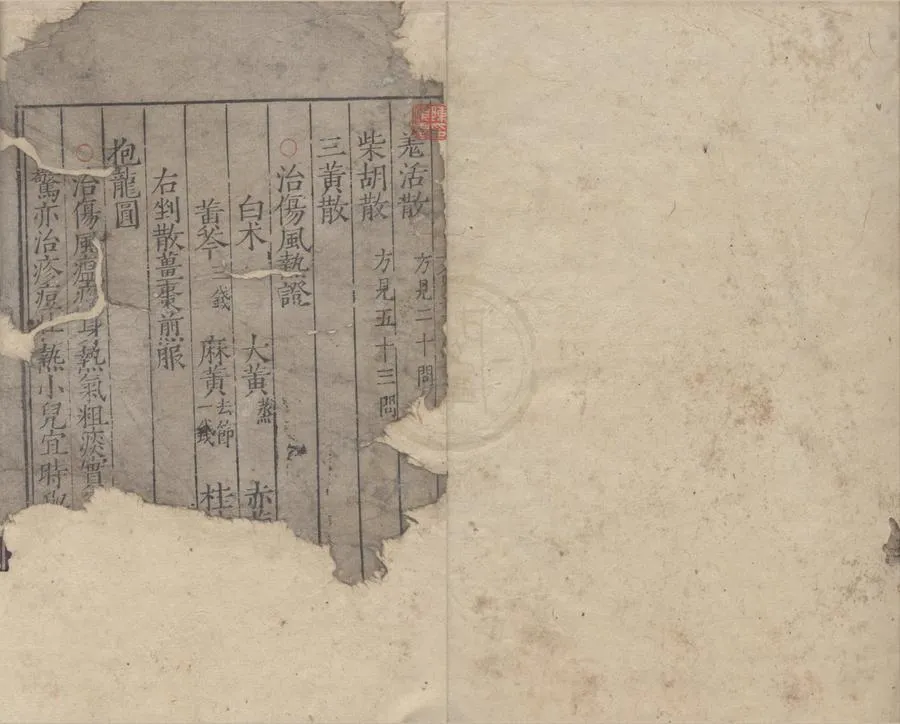 羗活散 方見二十問
柴胡散 方見五十三問
三黃散
○治傷風熱證
白朮 大黃蒸 赤
黃芩三錢 麻黃去節一錢 桂
右剉散薑棗煎服
抱龍圓
○治傷風瘟疫身熱氣粗痰實
驚亦治疹痘壯熱小兒宜時